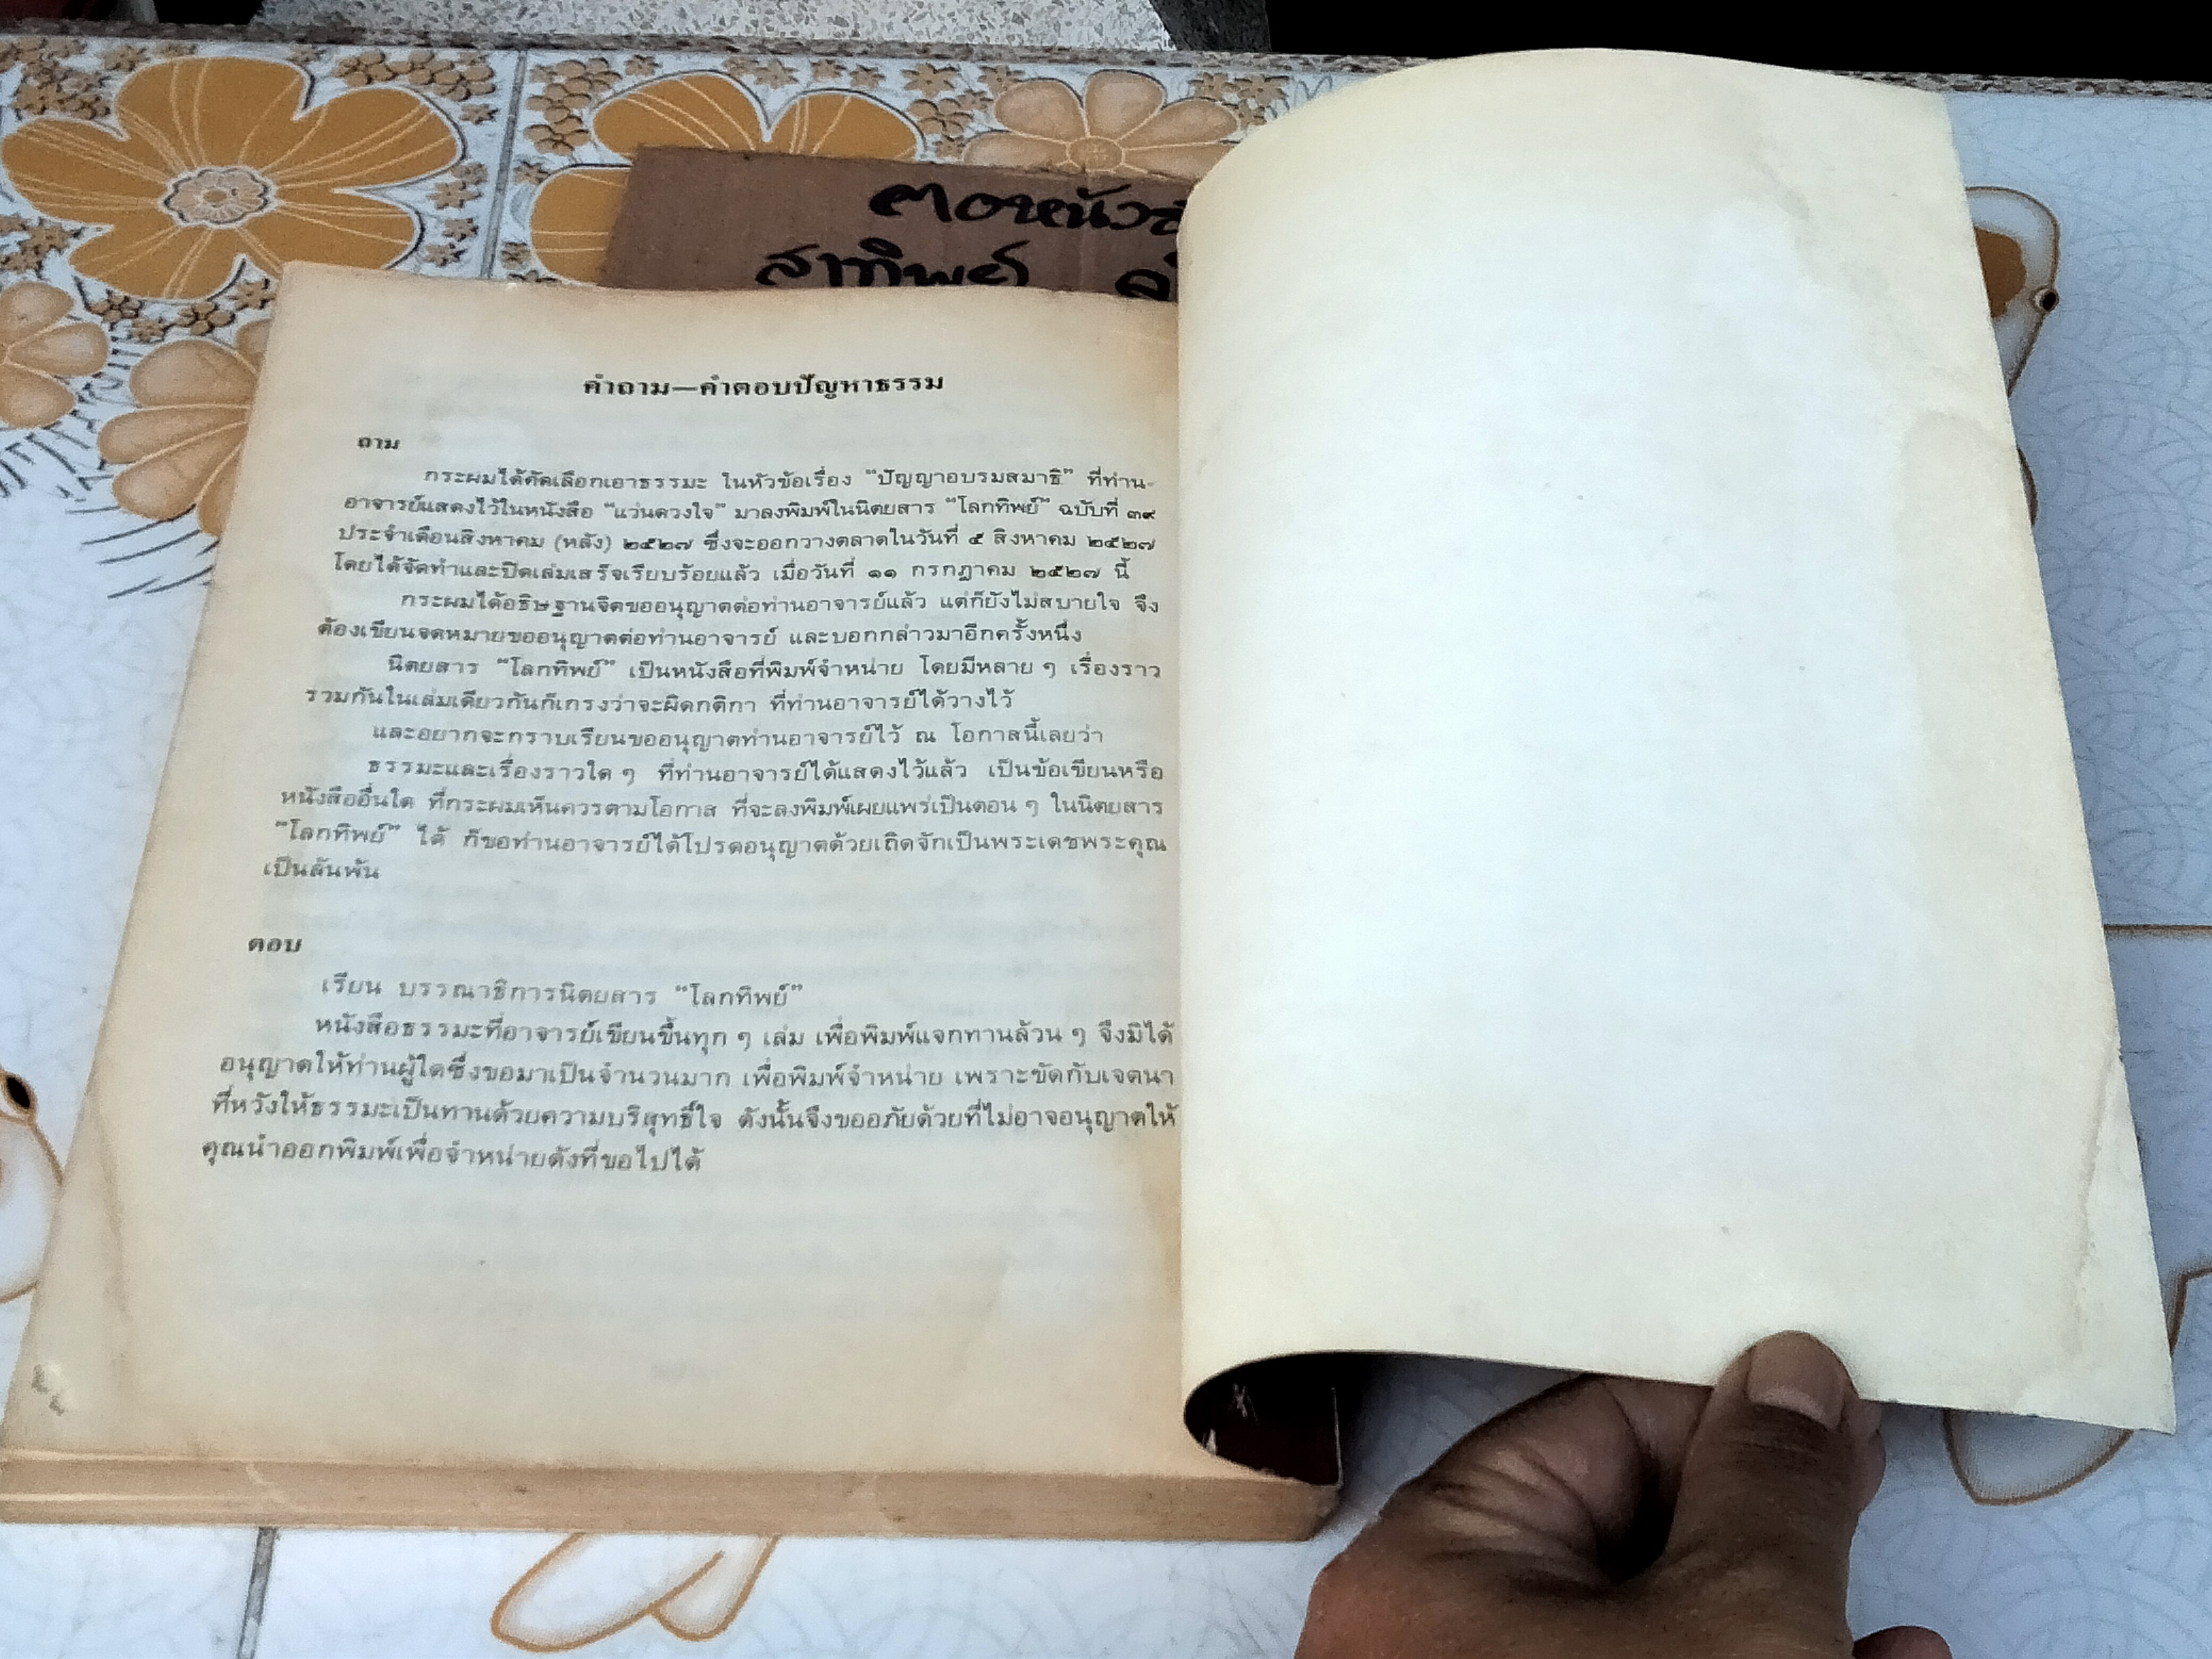 สาทิพย์
คำถาม—คำตอบปัญหาธรรม
ถาม
กระผมได้คัดเลือกเอาธรรมะ ในหัวข้อเรื่อง “ปัญญาอบรมสมาธิ” ที่ท่าน-
อาจารย์แสดงไว้ในหนังสือ “แว่นดวงใจ” มาลงพิมพ์ในนิตยสาร “โลกทิพย์” ฉบับที่ ๓๙
ประจำเดือนสิงหาคม (หลัง) ๒๕๒๗ ซึ่งจะออกวางตลาดในวันที่ ๕ สิงหาคม ๒๕๒๗
โดยได้จัดทำและปิดเล่มเสร็จเรียบร้อยแล้ว เมื่อวันที่ ๑๑ กรกฎาคม ๒๕๒๗ นี้
กระผมได้อธิษฐานจิตขออนุญาตต่อท่านอาจารย์แล้ว แต่ก็ยังไม่สบายใจ จึง
ต้องเขียนจดหมายขออนุญาตต่อท่านอาจารย์ และบอกกล่าวมาอีกครั้งหนึ่ง
นิตยสาร “โลกทิพย์” เป็นหนังสือที่พิมพ์จำหน่าย โดยมีหลาย ๆ เรื่องราว
รวมกันในเล่มเดียวกันก็เกรงว่าจะผิดกติกา ที่ท่านอาจารย์ได้วางไว้
และอยากจะกราบเรียนขออนุญาตท่านอาจารย์ไว้ ณ โอกาสนี้เลยว่า
ธรรมะและเรื่องราวใด ๆ ที่ท่านอาจารย์ได้แสดงไว้แล้ว เป็นข้อเขียนหรือ
หนังสืออื่นใด ที่กระผมเห็นควรตามโอกาส ที่จะลงพิมพ์เผยแพร่เป็นตอน ๆ ในนิตยสาร
“โลกทิพย์” ได้ ก็ขอท่านอาจารย์ได้โปรดอนุญาตด้วยเถิดจักเป็นพระเดชพระคุณ
เป็นล้นพ้น
ตอบ
เรียน บรรณาธิการนิตยสาร “โลกทิพย์”
หนังสือธรรมะที่อาจารย์เขียนขึ้นทุก ๆ เล่ม เพื่อพิมพ์แจกทานล้วน ๆ จึงมิได้
อนุญาตให้ท่านผู้ใดซึ่งขอมาเป็นจำนวนมาก เพื่อพิมพ์จำหน่าย เพราะขัดกับเจตนา
ที่หวังให้ธรรมะเป็นทานด้วยความบริสุทธิ์ใจ ดังนั้นจึงขออภัยด้วยที่ไม่อาจอนุญาตให้
คุณนำออกพิมพ์เพื่อจำหน่ายดังที่ขอไปได้